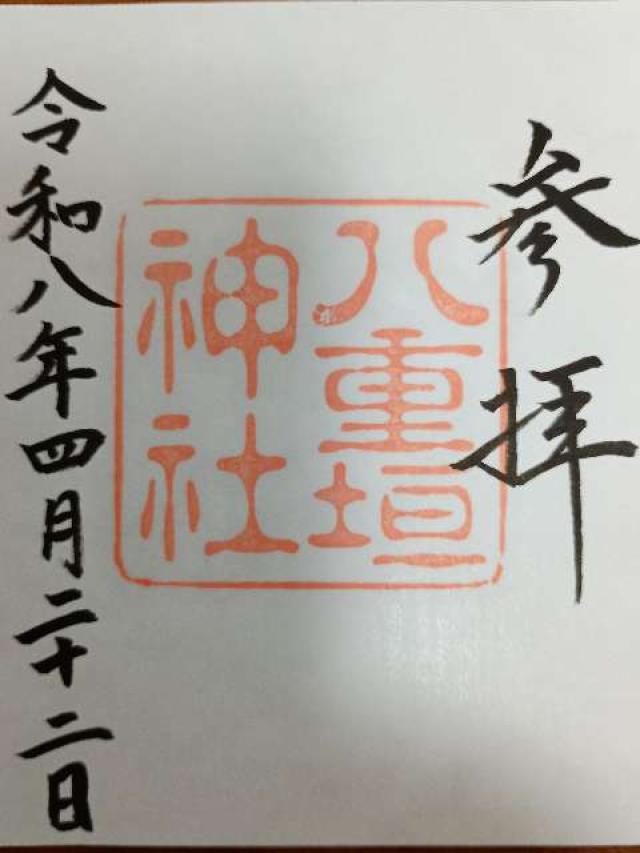 参拝
八重垣
神社
令和八年四月二十二日